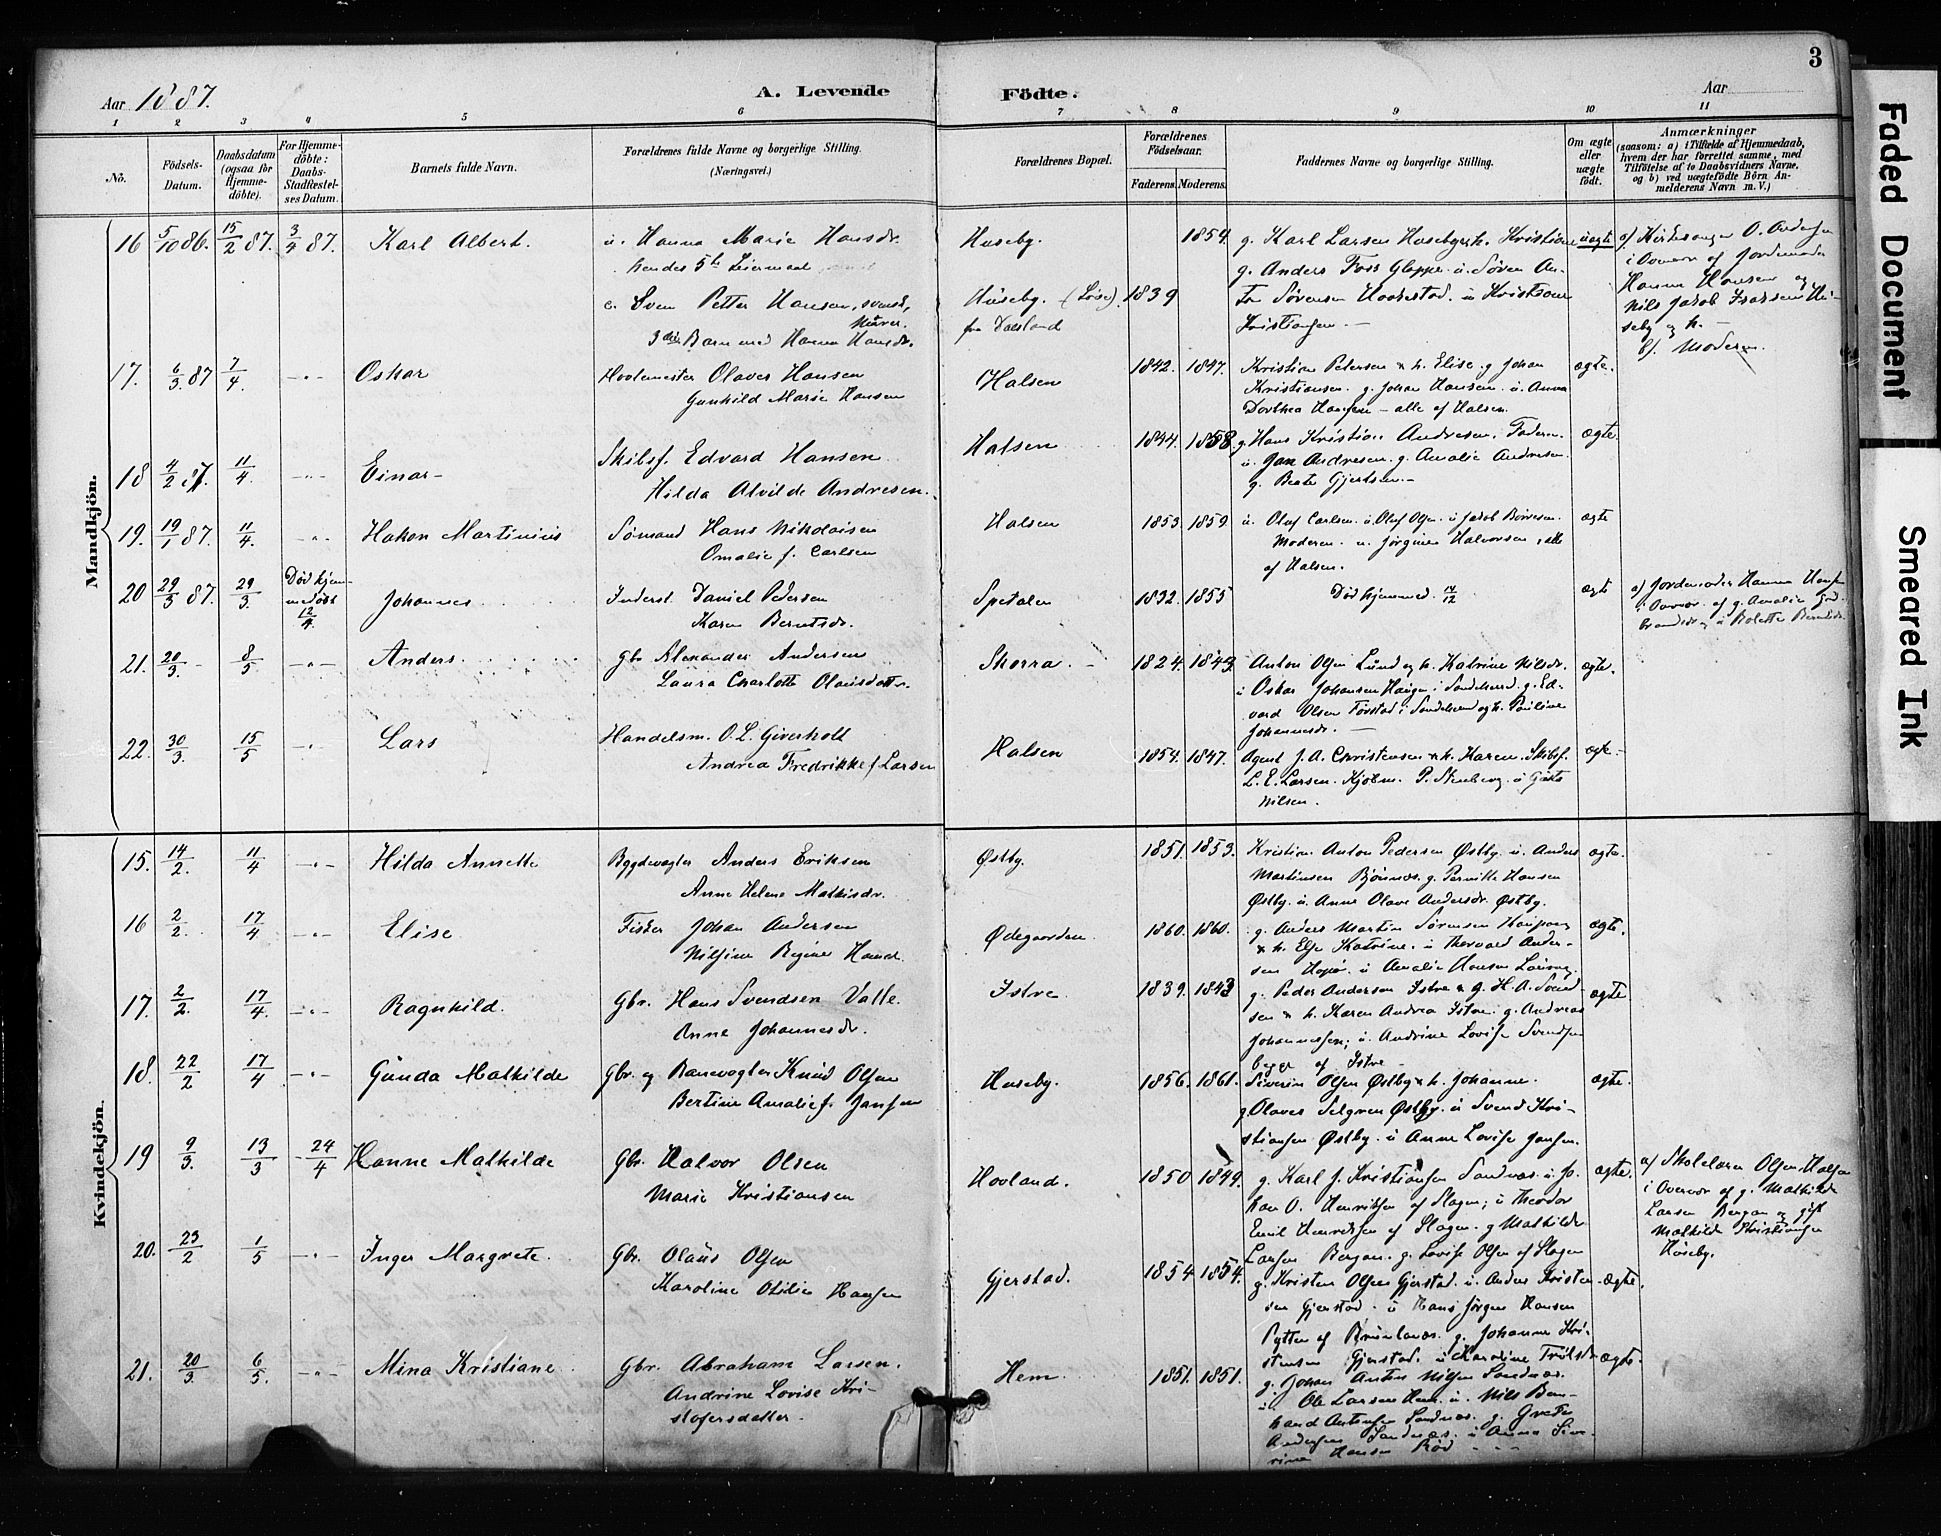 3
Aar 1887.
A. Levende Födte.
Aar
1 2 3 4 5 6 7 8 9 10 11
No.
Födsels-Datum.
Daabsdatum (ogsaa for Hjemme-döbte).
For Hjemme-döbte: Daabs-Stadfæstel-ses Datum.
Barnets fulde Navn.
Forældrenes fulde Navne og borgerlige Stilling. (Næringsvei.)
Forældrenes Bopæl.
Forældrenes Födselsaar.
Faderens. Moderens.
Faddernes Navne og borgerlige Stilling.
Om ægte eller uægte födt.
Anmærkninger
(saasom: a) i Tilfælde af Hjemmedaab,
hvem der har forrettet samme, med
Tilföielse af to Daabsvidners Navne,
og b) ved uægtefödte Börn An-
melderens Navn m. V.)
Mandkjön.
16 5/10 86. 15/2 87. 3/4 87. Karl Albert. u. Hanna Marie Hansdr. Huseby. 1854. g. Karl Larsen Huseby & h. Kristine uægte a/ Kirkesanger O. Andersen
hendes 5te Leiermaal g. Anders Foss Gloppe. u. Søren An- i Overvær af Jordemoder
e. Sven Petter Hansen, svensk, Huseby. (Løsn). 1839 ton Sørensen u. Kristiane Hanna Hansen og
Murer. fra Kristiansen. — Nils Jakob Isaksen Hu-
3die Barn med Hanna Hansdr. seby og h. —
b/. Moderen.
17. 6/3 87 7/4. —"— Oskar Hovlemester Olaves Hansen Halsen 1842. 1847. Kristian Petersen & h. Elise. g. Johan ægte.
Gunhild Marie Hansen Kristiansen. g. Johan Hansen. u. Anna
Dorthea Hansen — alle af Halsen.
18 4/2 87. 11/4. —"— Einar — Skibsf. Edvard Hansen Halsen 1844. 1858. g. Hans Kristian Andresen. Faderen. ægte.
Hilda Alvilde Andresen. u. Jan Andresen. g. Amalie Andresen.
g. Beate Gjertsen. —
19. 19/1 87. 11/4. —"— Hakon Martinius Sømand Hans Nikolaisen Halsen 1853. 1859. u. Oluf Carlsen. u. Oluf Olsen. u. Jakob Børresen. ægte
Omalie f. Carlsen Moderen. u. Jørgine Halvorsen, alle
af Halsen.
20 29/3 87. 29/3. Død hjem-medøbt 2/4. Johannes Inderst. Daniel Pedersen Spetalen 1832. 1855 Død hjemmed. 14/12 ægte a/ Jordemoder Hanna Hansen
Karen Berntsdr. i Overvær af g. Amalie
u. Bolette Berntsdr.
21. 20/3 — 8/5 —"— Anders. Gbr. Alexander Andersen Skorra. — 1824. 1843. Anton Olsen Lund og h. Katrine Nilsdr. ægte.
Laura Charlotte Olausdatter. u. Oskar Johansen Haugen i Sandeherred. g. Ed-
vard Olsen Førstad i Sandeherred og h. Pauline
Johannesdr. —
22. 30/3. 15/5 —"— Lars Handelsm. O. L. Giverholt Halsen 1854. 1847. Agent J. A. Christensen & h. Karen. Skibsf. ægte —
Andrea Fredrikke f. Larsen L. E. Larsen. Kjøbm. P. Stenberg. u. Gusta
Nilsen.
Kvindekjön.
15. 14/2. 11/4 —"— Hilda Annette Bygdevægter Anders Eriksen Østby. 1851. 1853. Kristian Anton Pedersen Østby. u. Anders ægte.
Anne Helene Mathisdr. Martinsen Bjønnæs. g. Pernille Hansen
Østby. u. Anne Olave Andersdr. Østby.
16 2/2. 17/4 —"— Elise. Fisker Johan Andersen Ødegaarden. 1860. 1860. g. Anders Martin Sørensen ægte.
Nilsine Regine Hansd. & h. Else Katrine. u. Thorvald Ander-
sen u. Amalie Hansen
17. 2/2. 17/4. —"— Ragnhild. Gbr. Hans Svendsen Valle. Istre. 1839. 1843 g. Peder Andersen Istre & g. H. A. Svend- ægte
Anne Johannesdr. sen & h. Karen Andrea Istre. g. Andreas
Johannessen; u. Andrine Lovise Svendsen
begge af Istre —
18. 22/2 17/4 —"— Gunda Mathilde Gbr. og Banevogter Knud Olsen Huseby. 1856. 1861. Severin Olsen Østby & h. Johanne. ægte.
Bertine Amalie f. Jansen g. Olaves Selgren Østby. u. Svend Kri-
stiansen Østby. u. Anne Lovise Jansen.
19 9/3. 13/3 24/4 Hanne Mathilde Gbr. Halvor Olsen Hovland. 1850 1849. g. Karl J. Kristiansen Sandnæs. u. Jo- ægte. a/ Skolelærer Olsen, Halsen
Marie Kristiansen han O. Henriksen af Slagen; u. Theodor i Overvær af g. Mathilde
Emil Henriksen af Slagen. g. Mathilde Larsen Bergan og gift
Larsen Bergan. g. Lovise Olsen af Slagen Mathilde Kristiansen
Huseby.
20. 23/2 1/5 —"— Inger Margrete. Gbr. Olaus Olsen Gjerstad. 1854 1854. g. Kristen Olsen Gjerstad. u. Anders Kristen- ægte.
Karoline Otilie Hansen sen Gjerstad. u. Hans Jørgen Hansen
Pytten af Brunlanæs. g. Johanne Kri-
stensen Gjerstad. u. Karoline
21. 20/3 6/5. —"— Mina Kristiane Gbr. Abraham Larsen. Hem. 1851. 1851. g. Johan Anton Nilsen Sandnæs. ægte.
Andrine Lovise Kri- u. Ole Larsen Hem. u. Nils Bern-
stofersdatter. hard Antonsen Sandnæs. g. Grete
Andersen Sandnæs. u. Anna Seve-
rine Hansen Rød
Faded Document
Smeared Ink